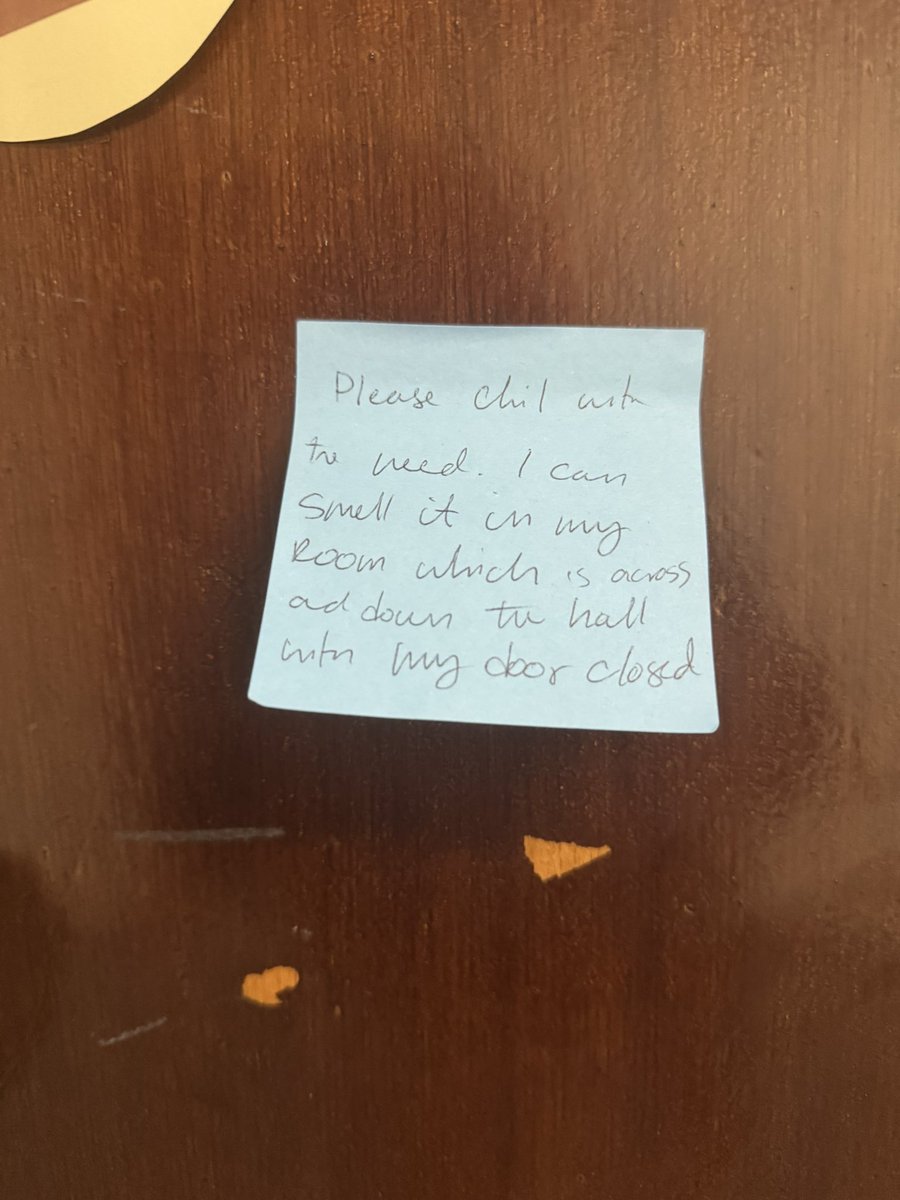 Please chil with
the weed. I can
smell it in my
Room which is across
ad down the hall
with my door closed